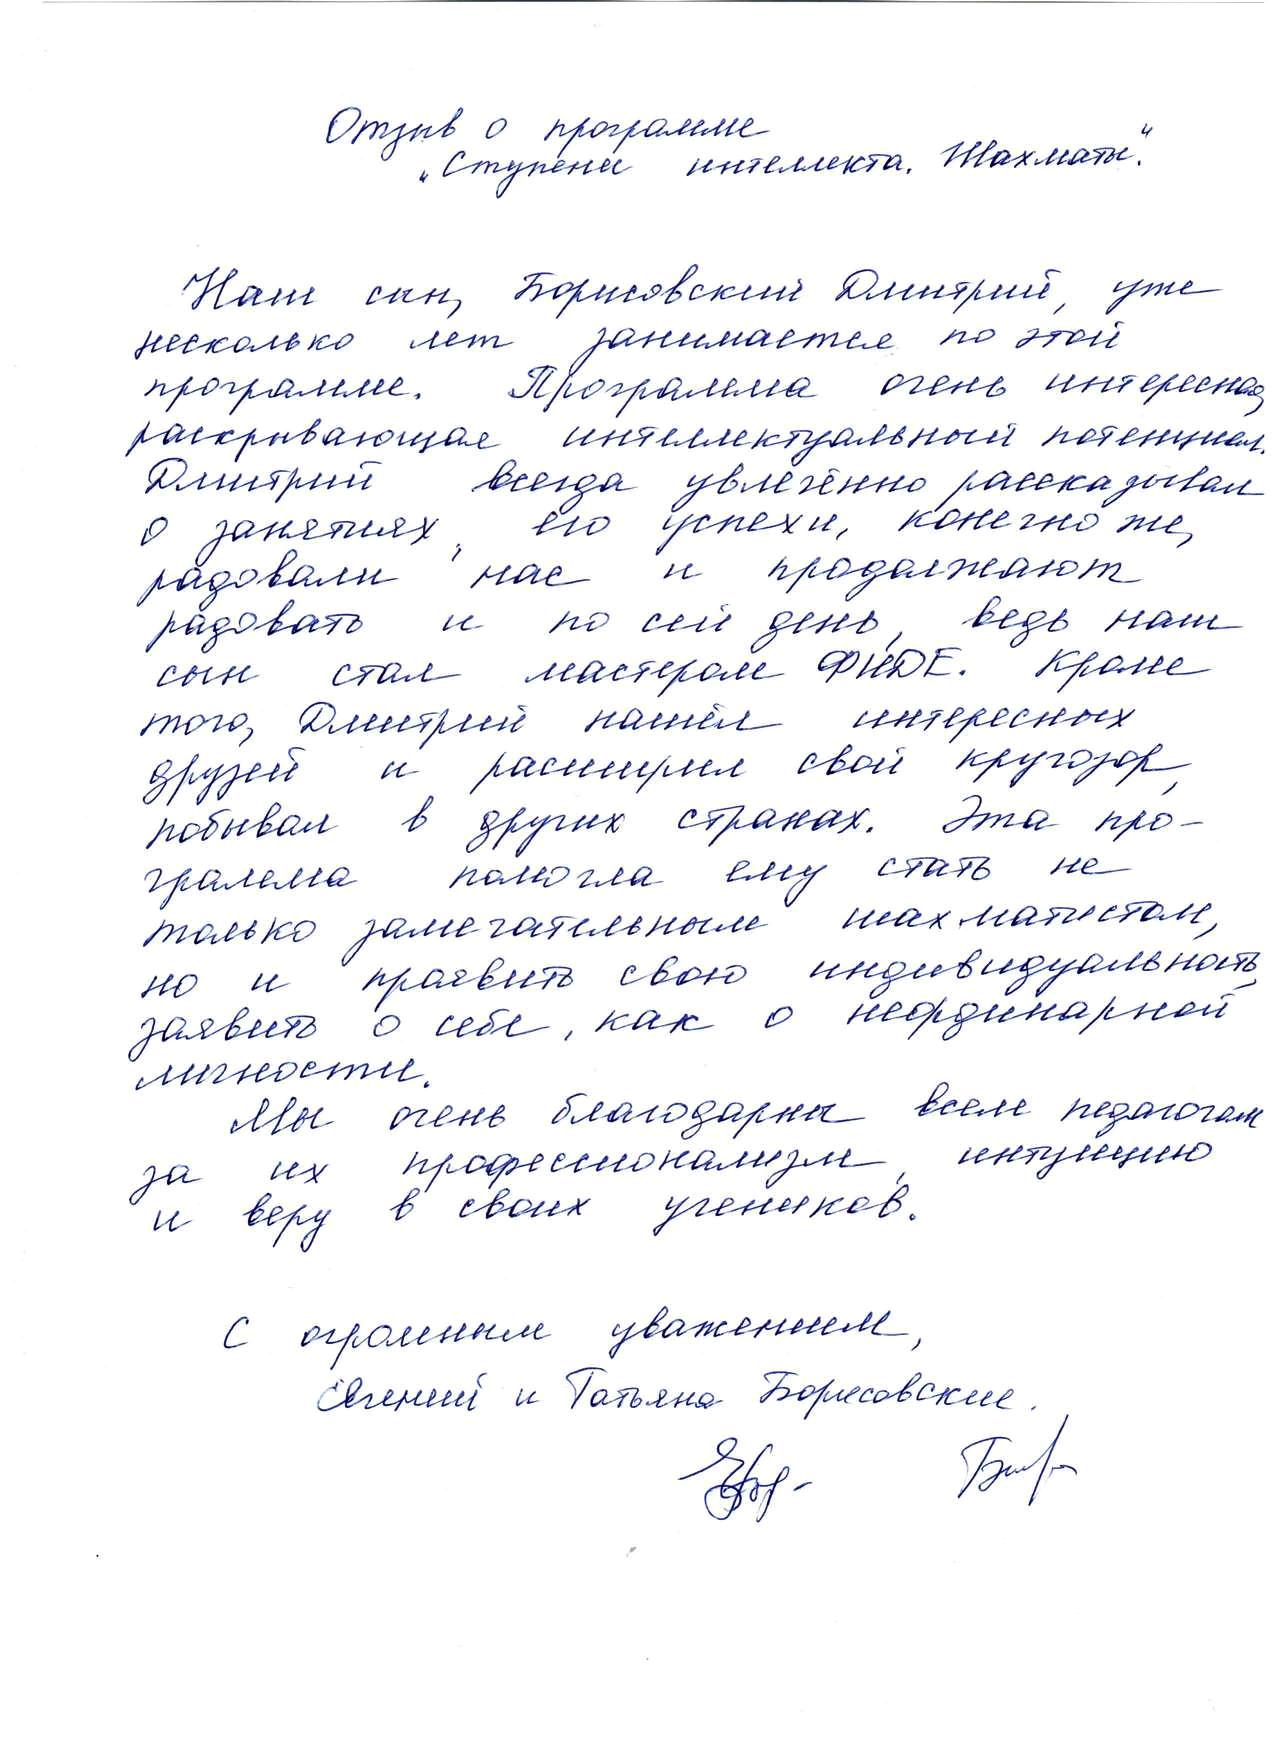 Отзыв о программе
„Ступени интеллекта. Шахматы".
Наш сын, Борисовский Дмитрий, уже
несколько лет занимается по этой
программе. Программа очень интересная,
раскрывающая интеллектуальный потенциал.
Дмитрий всегда увлечённо рассказывал
о занятиях, его успехи, конечно же,
радовали нас и продолжают
радовать и по сей день, ведь наш
сын стал мастером ФИДЕ. Кроме
того, Дмитрий нашёл интересных
друзей и расширил свой кругозор,
побывал в других странах. Эта про-
грамма помогла ему стать не
только замечательным шахматистом,
но и проявить свою индивидуальность,
заявить о себе, как о неординарной
личности.
Мы очень благодарны всем педагогам
за их профессионализм, интуицию
и веру в своих учеников.
С огромным уважением,
Евгений и Татьяна Борисовские.